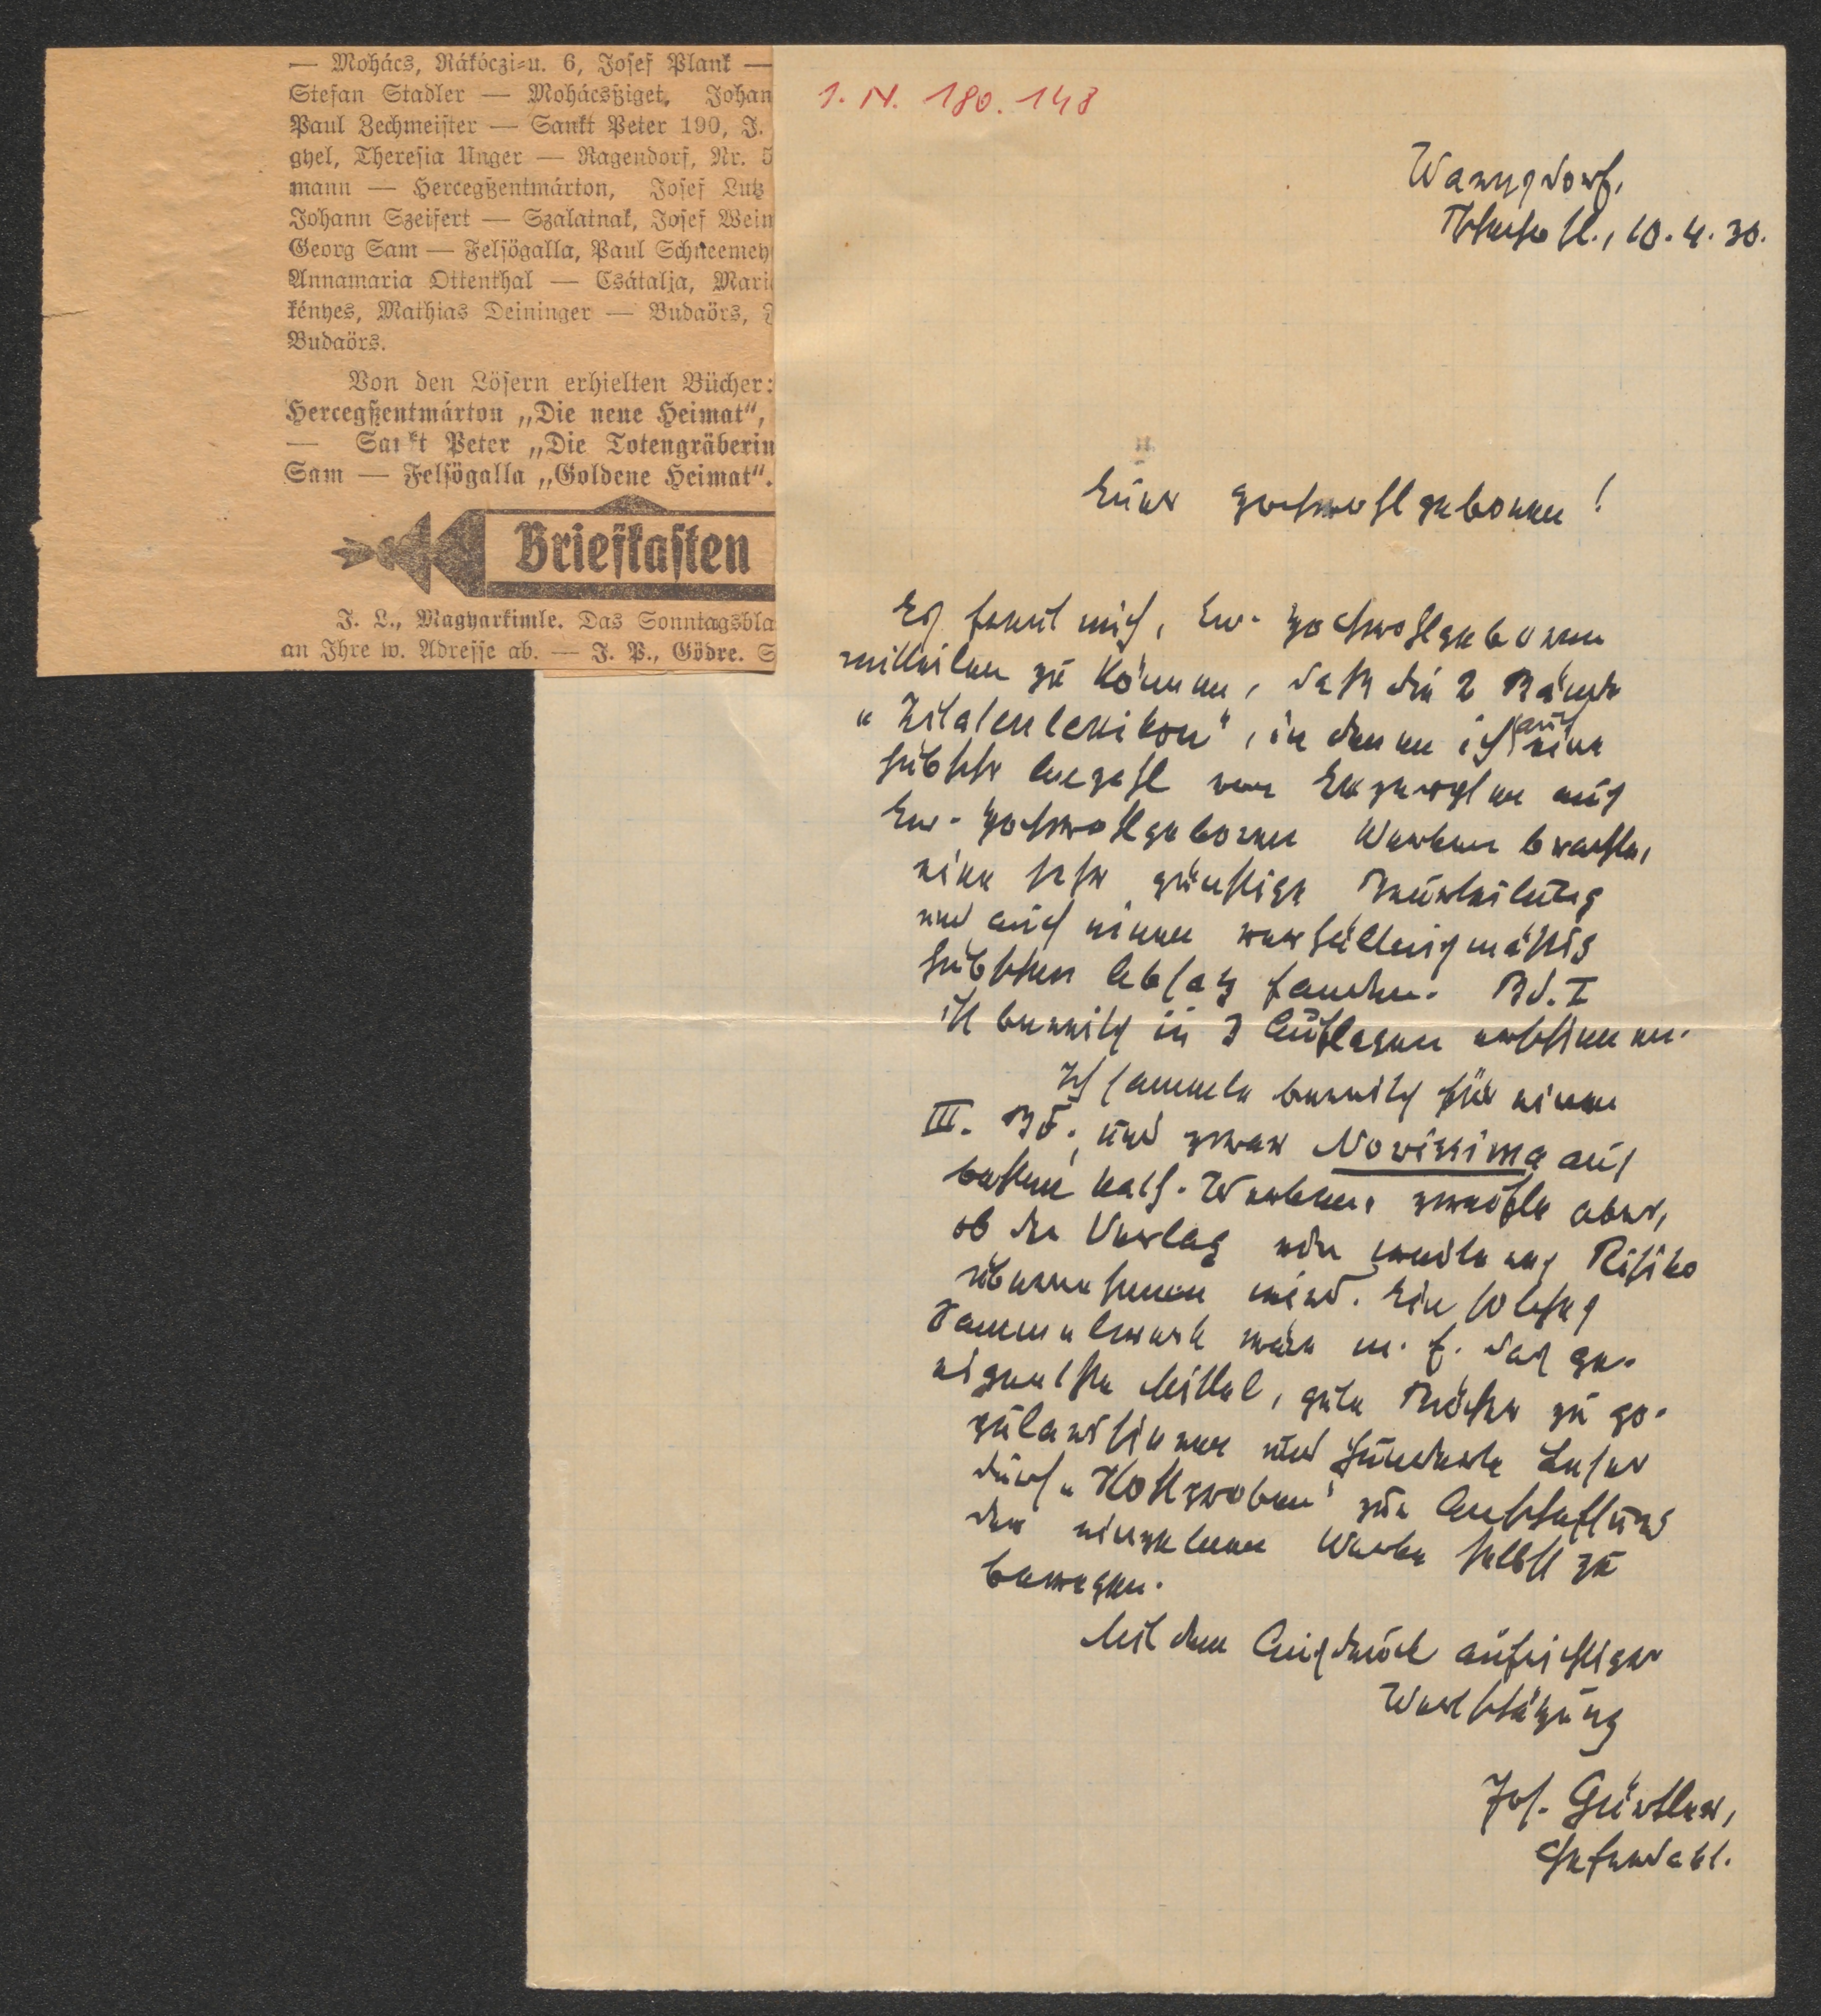 — Mohács, Rákóczi=u. 6, Josef Plank —
Stefan Stadler — Mohácsßiget, Johan
Paul Zechmeister — Sankt Peter 190, J.
gyel, Theresia Unger — Ragendorf, Nr. 5
mann — Hercegßentmárton, Josef Lutz
Johann Szeifert — Szalatnak, Josef Wein
Georg Sam — Felsögalla, Paul Schneemey
Annamaria Ottenthal — Csátalja, Mari
kényes, Mathias Deininger — Budaörs,
Budaörs.
Von den Lösern erhielten Bücher:
Hercegßentmárton „Die neue Heimat“,
— Sankt Peter „Die Totengräberin
Sam — Felsögalla „Goldene Heimat“.
Briefkasten
J. L., Magyarkimle. Das Sonntagsbla
an Ihre w. Adresse ab. — J. P., Gödre. S
I. N. 180.148
Warnsdorf,
10.4.30.
Euer Hochwohlgeboren!
Es freut mich, Ew. Hochwohlgeboren
mitteilen zu können, daß die 2 Bände
„Zitatenlexikon“, in denen ich auch eine
hübsche Anzahl von Exzerpten aus
Ew. Hochwohlgeboren Werken brachte,
eine sehr günstige Beurteilung
und auch einen verhältnismäßig
hübschen Absatz fanden. Bd. I
ist bereits in 3 Auflagen erschienen.
Ich sammle bereits für einen
III. Bd., und zwar Novissima aus
besten kath. Werken, zweifle aber,
ob der Verlag ein weiteres Risiko
übernehmen wird. Ein solches
Sammelwerk wäre m. E. das ge-
eignetste Mittel, gute Bücher zu po-
pularisieren und hunderte Leser
durch „Kostproben“ zur Anschaffung
der einzelnen Werke selbst zu
bewegen.
Mit dem Ausdruck aufrichtiger
Wertschätzung
Jos. Gürtler,